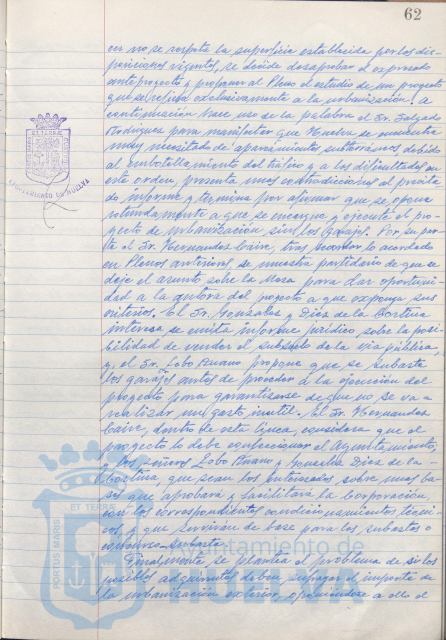 62
en no se respeta la superficie establecida por las dis-
posiciones vigentes, se decide desaprobar el expresado
anteproyecto y proponer al Pleno el estudio de un proyecto
que se refiera exclusivamente a la urbanización. A
continuación hace uso de la palabra el Sr. Salgado
Rodríguez para manifestar que Huelva se encuentra
muy necesitada de aparcamientos subterráneos debido
al embotellamiento del tráfico y a las dificultades en
este orden, presenta unas contradicciones al
informe y termina por afirmar que se opone
rotundamente a que se encargue y ejecute el pro-
yecto de urbanización sin los garajes. Por su par-
te el Sr. Hernández Caire, tras recordar lo acordado
en Plenos anteriores se muestra partidario de que se
deje el asunto sobre la Mesa para dar oportuni-
dad a la autora del proyecto a que exponga sus
criterios. El Sr. González y Díez de la Cortina
interesa se emita informe jurídico sobre la posi-
bilidad de vender el subsuelo de la vía pública
y el Sr. Lobo Anano propone que se subaste
los garajes antes de proceder a la ejecución del
proyecto para garantizarse de que no se va a
realizar un gasto inútil. El Sr. Hernández
Caire, dentro de esta línea, considera que el
proyecto lo debe confeccionar el Ayuntamiento,
y los señores Lobo Anano y González Díez de la
Cortina, que sean los interesados sobre unas ba-
ses que aprobará y facilitará la Corporación,
con los correspondientes condicionamientos técni-
cos y que servirán de base para las subastas o
concurso-subasta.
Finalmente se plantea el problema de si los
posibles adquirentes deben sufragar el importe de
la urbanización exterior, oponiéndose a ello el
AYUNTAMIENTO DE HUELVA
PORTUS MARIS
ET TERRAE
Ayuntamiento de
HUELVA